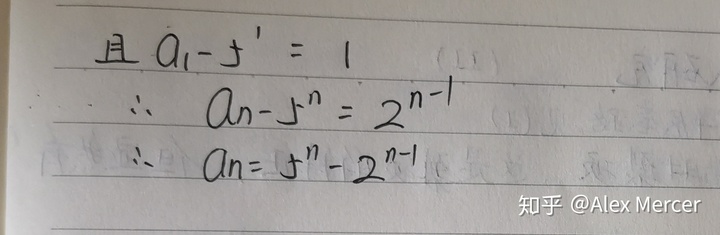 且 a₁-5¹ = 1
∴ aₙ-5ⁿ = 2ⁿ⁻¹
∴ aₙ = 5ⁿ-2ⁿ⁻¹
知乎 @Alex Mercer